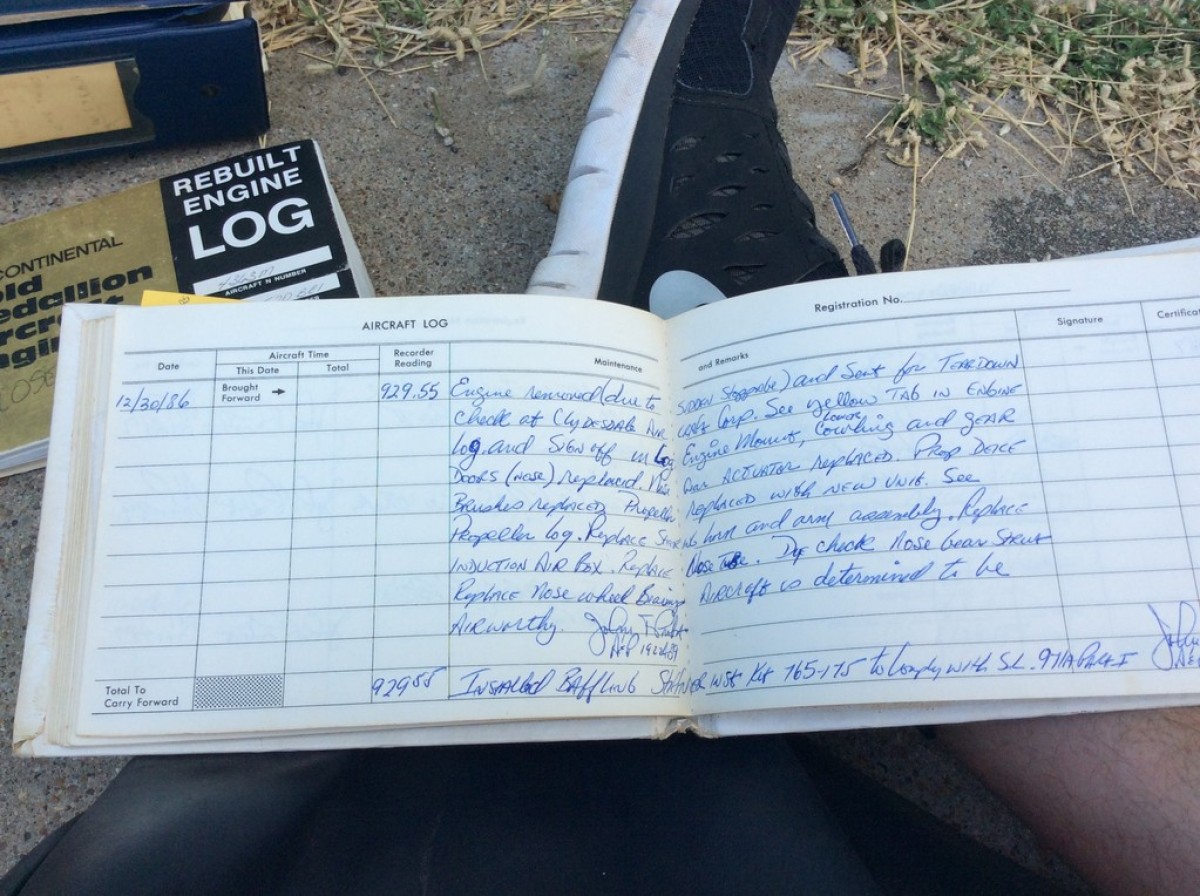 REBUILT
ENGINE
LOG
AIRCRAFT N NUMBER
CONTINENTAL
AIRCRAFT LOG
Registration No.
Date
Aircraft Time
This Date
Total
Recorder
Reading
Maintenance and Remarks
Signature
12/30/86
Brought
Forward
929.55 Engine removed (due to sudden stoppage) and Sent for TEARDOWN
check at CLYDESDALE AIR Corp. See yellow TAB IN ENGINE
Log and SIGN off in Log Engine Mount, LOWER Cowling and gEAR
DOORS (NOSE) replaced. ACTUATOR replaced. Prop DEICE
Brushes replaced Propeller REPLACED WITH NEW UNIT. See
Propeller Log. Replace horn and arm assembly. Replace
INDUCTION AIR Box. Replace Nose Tube. Dye check Nose Gear Strut
Replace Nose wheel Bearings Aircraft is determined to be
AIRWORTHY.
Total To
Carry Forward
929.55 INSTALLED BAFFLING Kit 765-175 to Comply with